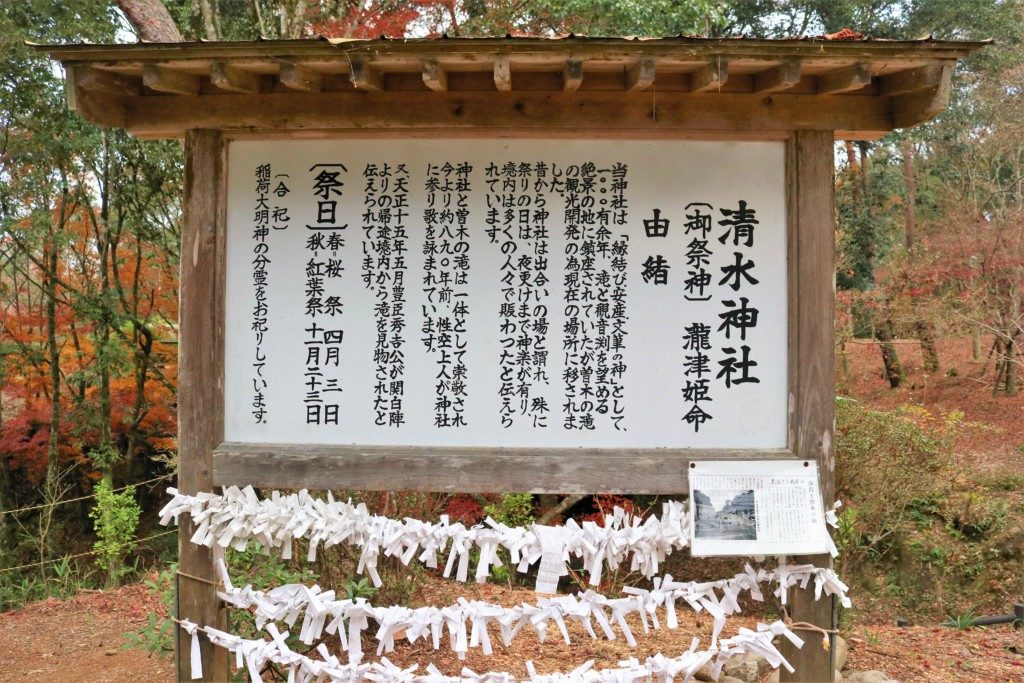 清水神社
〔御祭神〕 瀧津姫命
由緒
当神社は「縁結び安産文筆の神」として、
一〇〇〇有余年、滝と観音渕を望める
絶景の地に鎮座されていたが曽木の滝
の観光開発の為現在の場所に移されま
した。
昔から神社は出合いの場と謂れ、殊に
祭りの日は、夜更けまで神楽が有り、
境内は多くの人々で賑わったと伝えら
れています。
神社と曽木の滝は一体として崇敬され
今より約八九〇年前、性空上人が神社
に参り歌を詠まれています。
又、天正十五年五月豊臣秀吉公が関白陣
よりの帰途境内から滝を見物されたと
伝えられています。
〔祭日〕 春=桜 祭 四月 三 日
秋=紅葉祭 十一月二十三日
〔合 祀〕
稲荷大明神の分霊をお祀りしています。